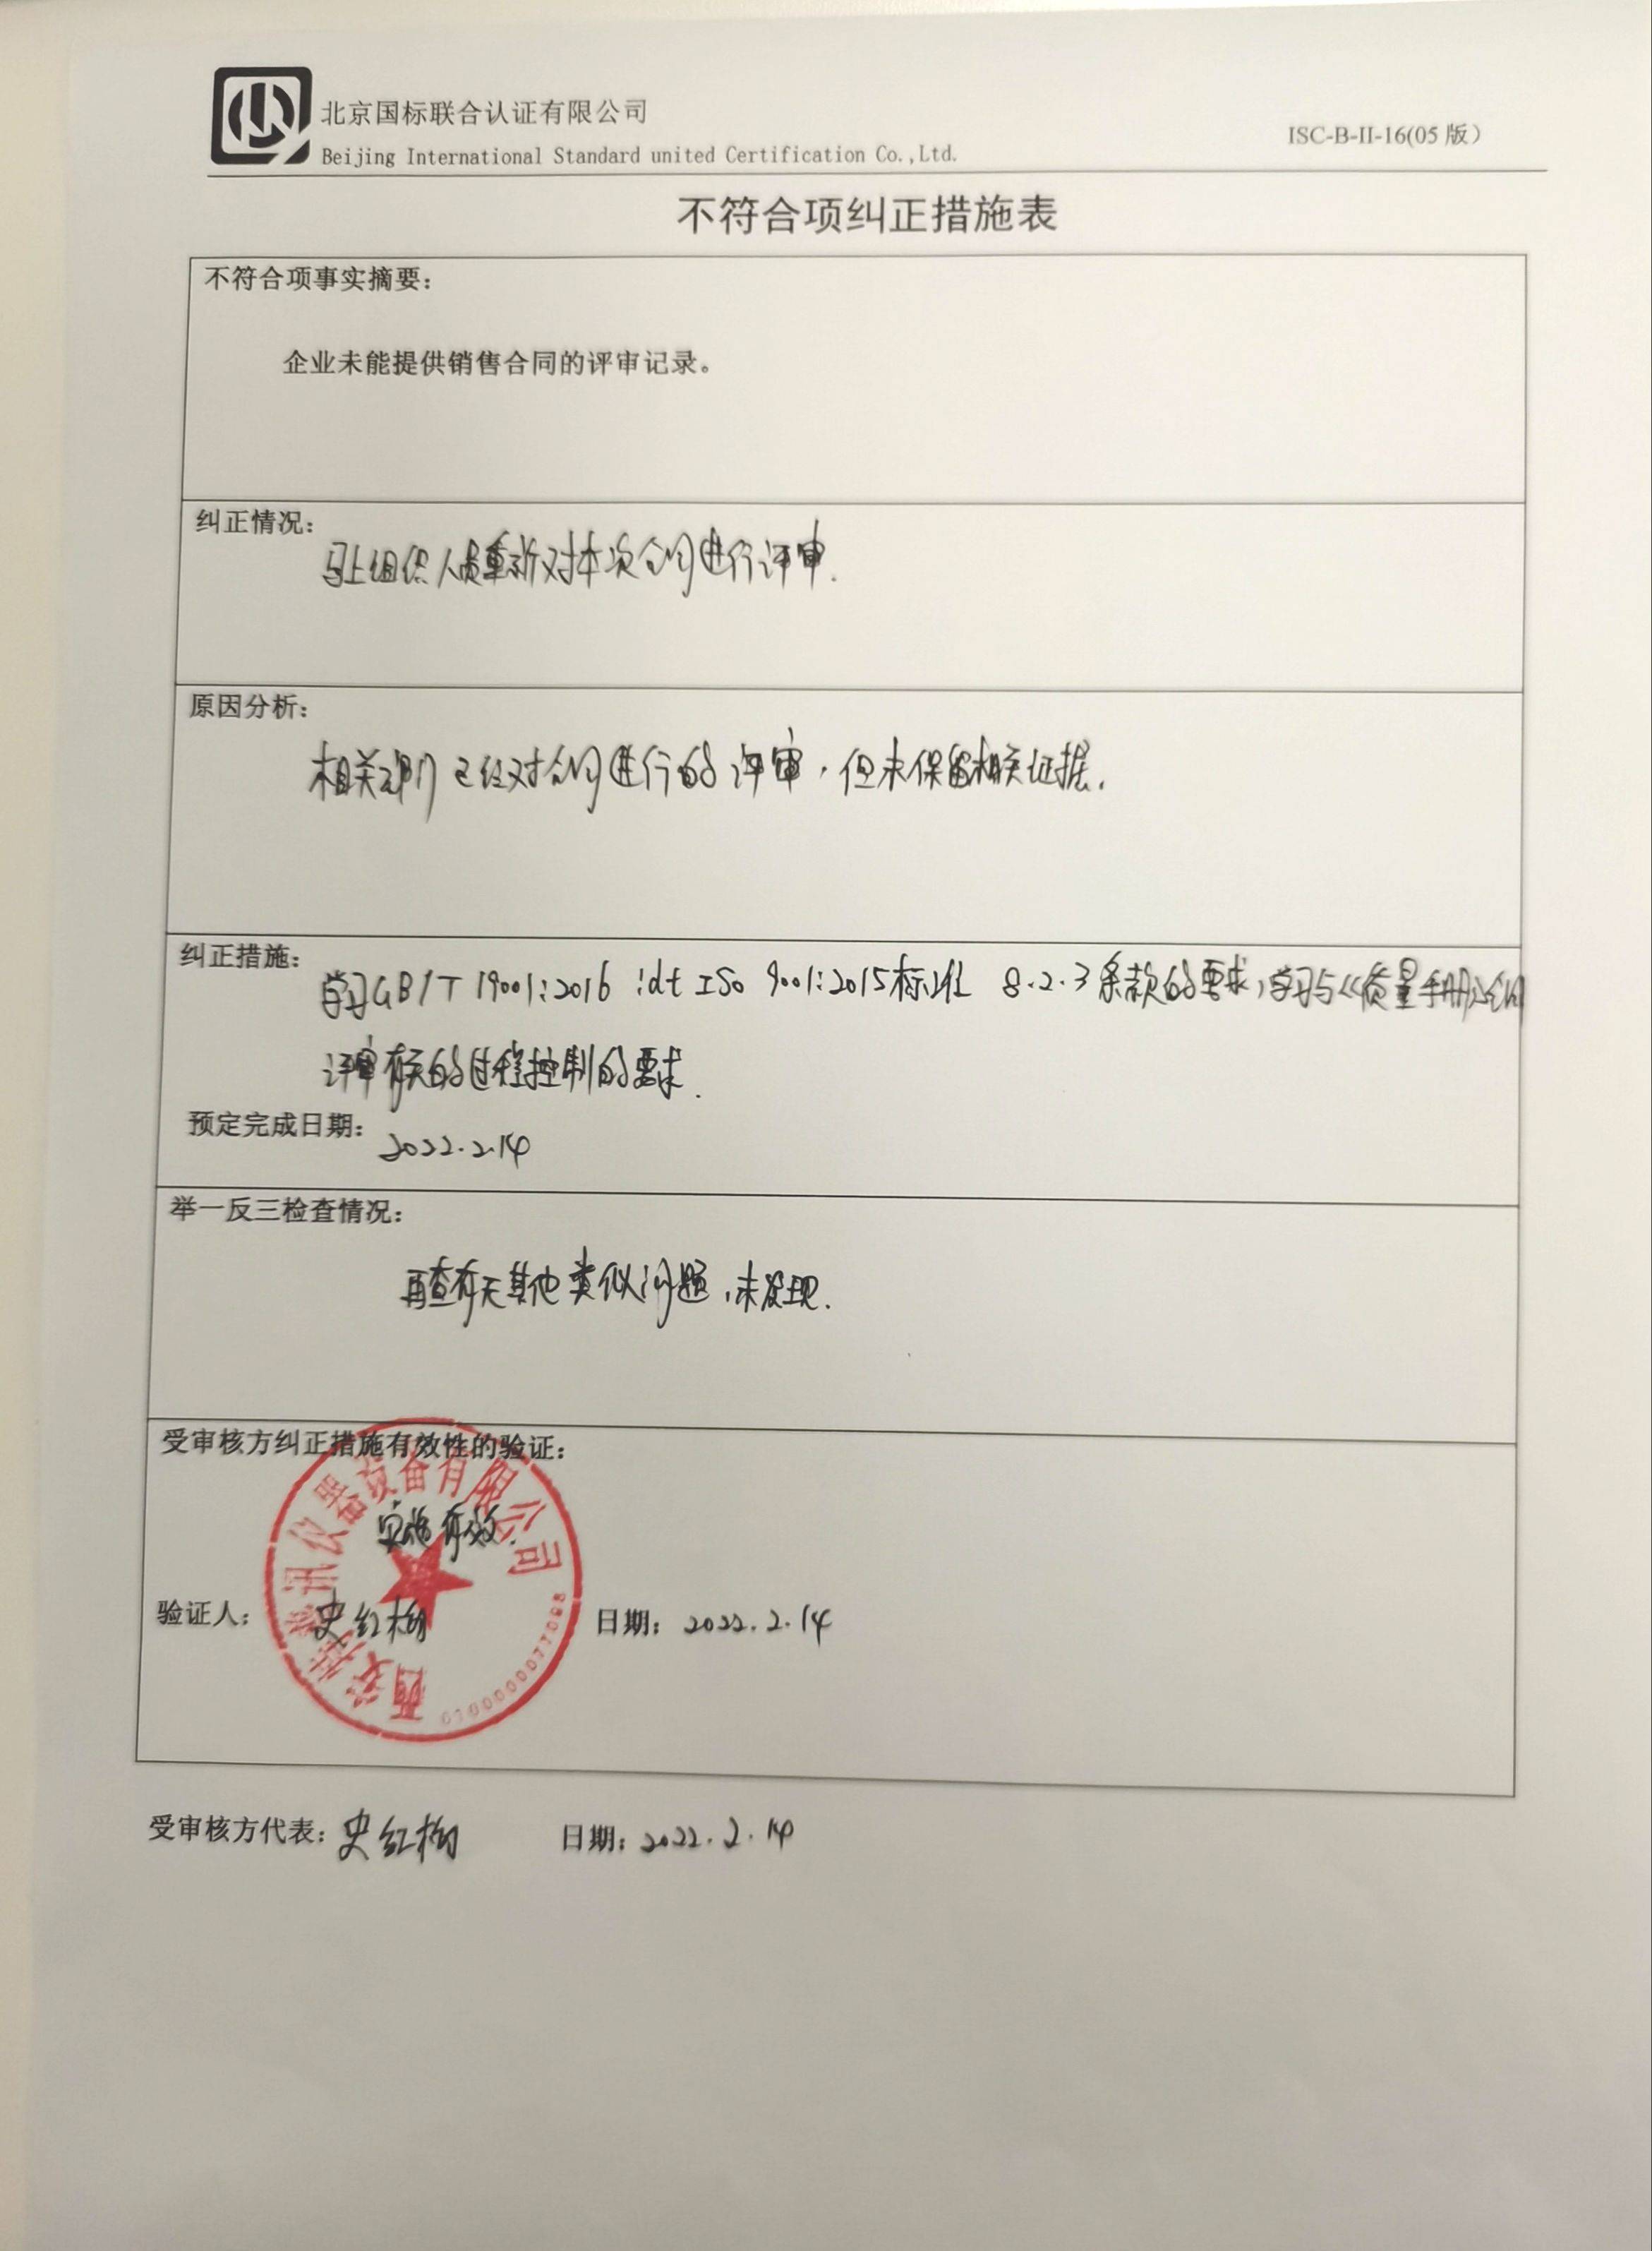 北京国标联合认证有限公司
Beijing International Standard united Certification Co.,Ltd.
ISC-B-II-16(05 版)
不符合项纠正措施表
不符合项事实摘要:
企业未能提供销售合同的评审记录。
纠正情况:
马上组织人员重新对本次合同进行评审.
原因分析:
相关部门已经对合同进行的评审,但未保留相关证据.
纠正措施:
学习GB/T 19001:2016 idt ISO 9001:2015标准 8.2.3条款的要求,学习与《质量手册》合同
评审有关的过程控制的要求.
预定完成日期:
2022.2.14
举一反三检查情况:
再查有无其他类似问题,未发现.
受审核方纠正措施有效性的验证:
实施有效.
仪器设备有限公司
验证人: 史红 日期: 2022.2.14
受审核方代表: 史红 日期: 2022.2.14